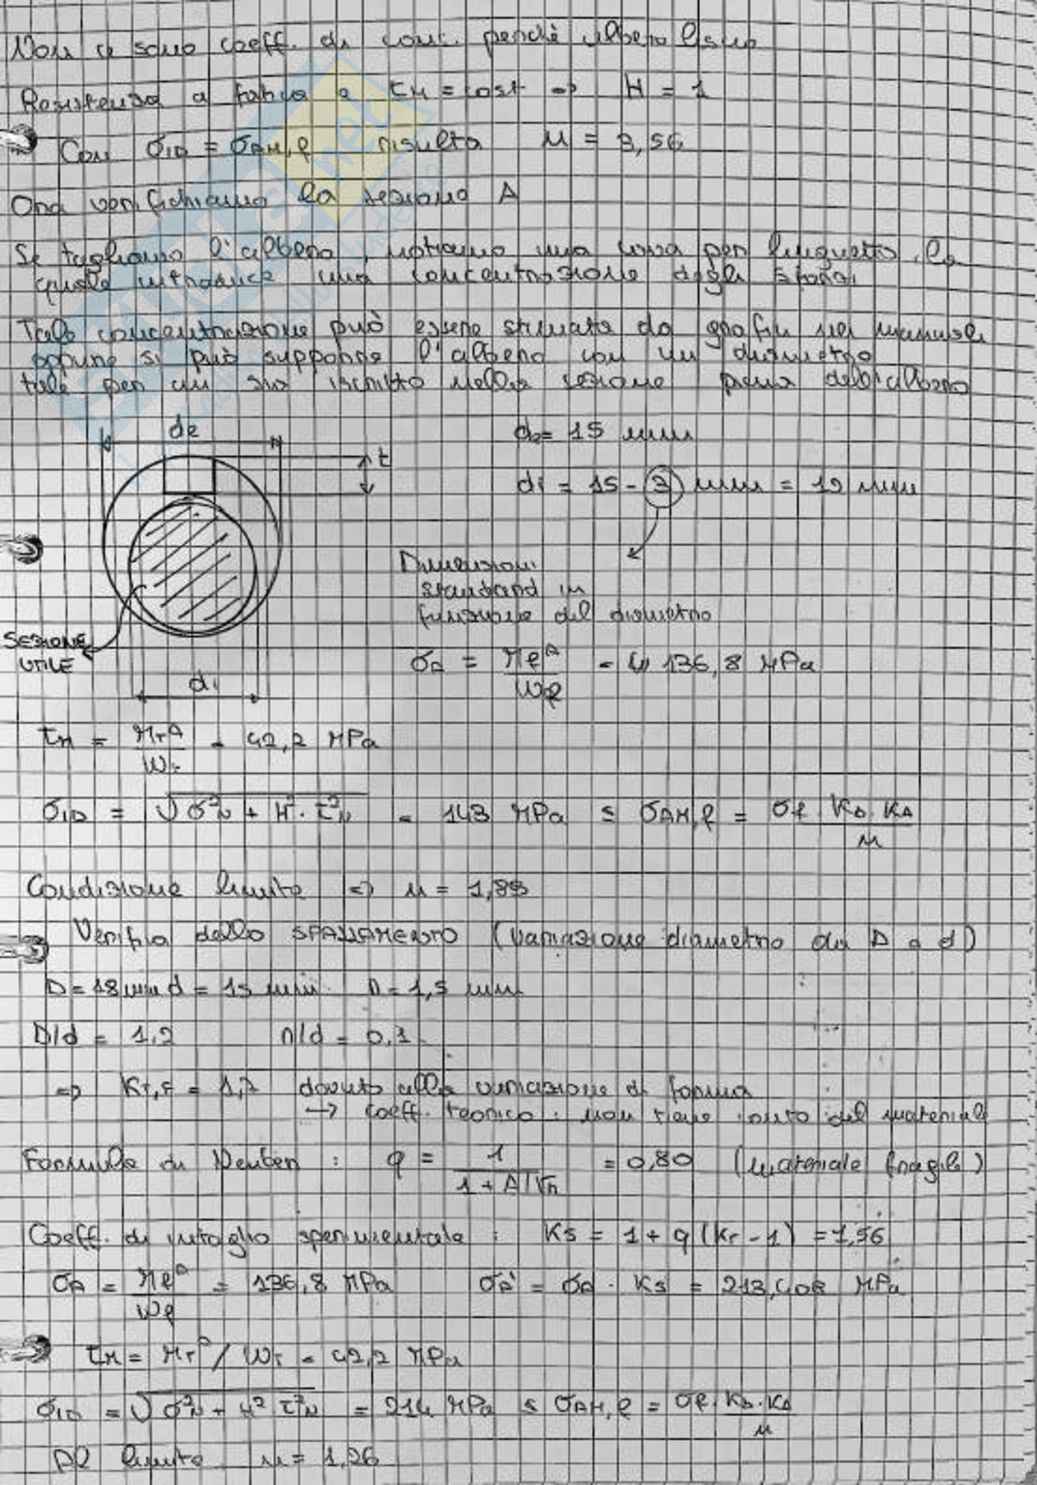 Non ci sono coeff. di conc. perchè albero liscio
Resistenza a fatica e τM = cost => H = 1
Con σID = σAM,F risulta n = 3,56
Ora verifichiamo la sezione A
Se tagliamo l'albero, notiamo una cava per linguetta, la
quale introduce una concentrazione degli sforzi
Tale concentrazione può essere stimata da grafici nel manuale
oppure si può supporre l'albero con un diametro
tale per cui sia iscritto nella sezione piena dell'albero
de
t
de = 15 mm
di = 15 - 3 mm = 12 mm
Dimensioni
standard in
funzione del diametro
SEZIONE
UTILE
di
σA = MfA / Wf = 136,8 MPa
τM = MTA / Wt = 42,2 MPa
σID = √σ²N + H² · τ²N = 143 MPa ≤ σAM,F = σF · KD · KA / n
Condizione limite => n = 1,89
Verifica dello SPALLAMENTO (variazione diametro da D a d)
D = 18 mm d = 15 mm r = 1,5 mm
D/d = 1,2 r/d = 0,1
=> KT,F = 1,7 dovuto alla variazione di forma
→ coeff. teorico: non tiene conto del materiale
Formula di Neuber : q = 1 / 1 + A/√r = 0,80 (materiale fragile)
Coeff. di intaglio sperimentale : KS = 1 + q (KT - 1) = 1,56
σA = MfA / Wf = 136,8 MPa σA' = σA · KS = 213,408 MPa
τM = MTA / Wt = 42,2 MPa
σID = √σ²N + H² τ²N = 214 MPa ≤ σAM,F = σF · KD · KA / n
Al limite n = 1,26